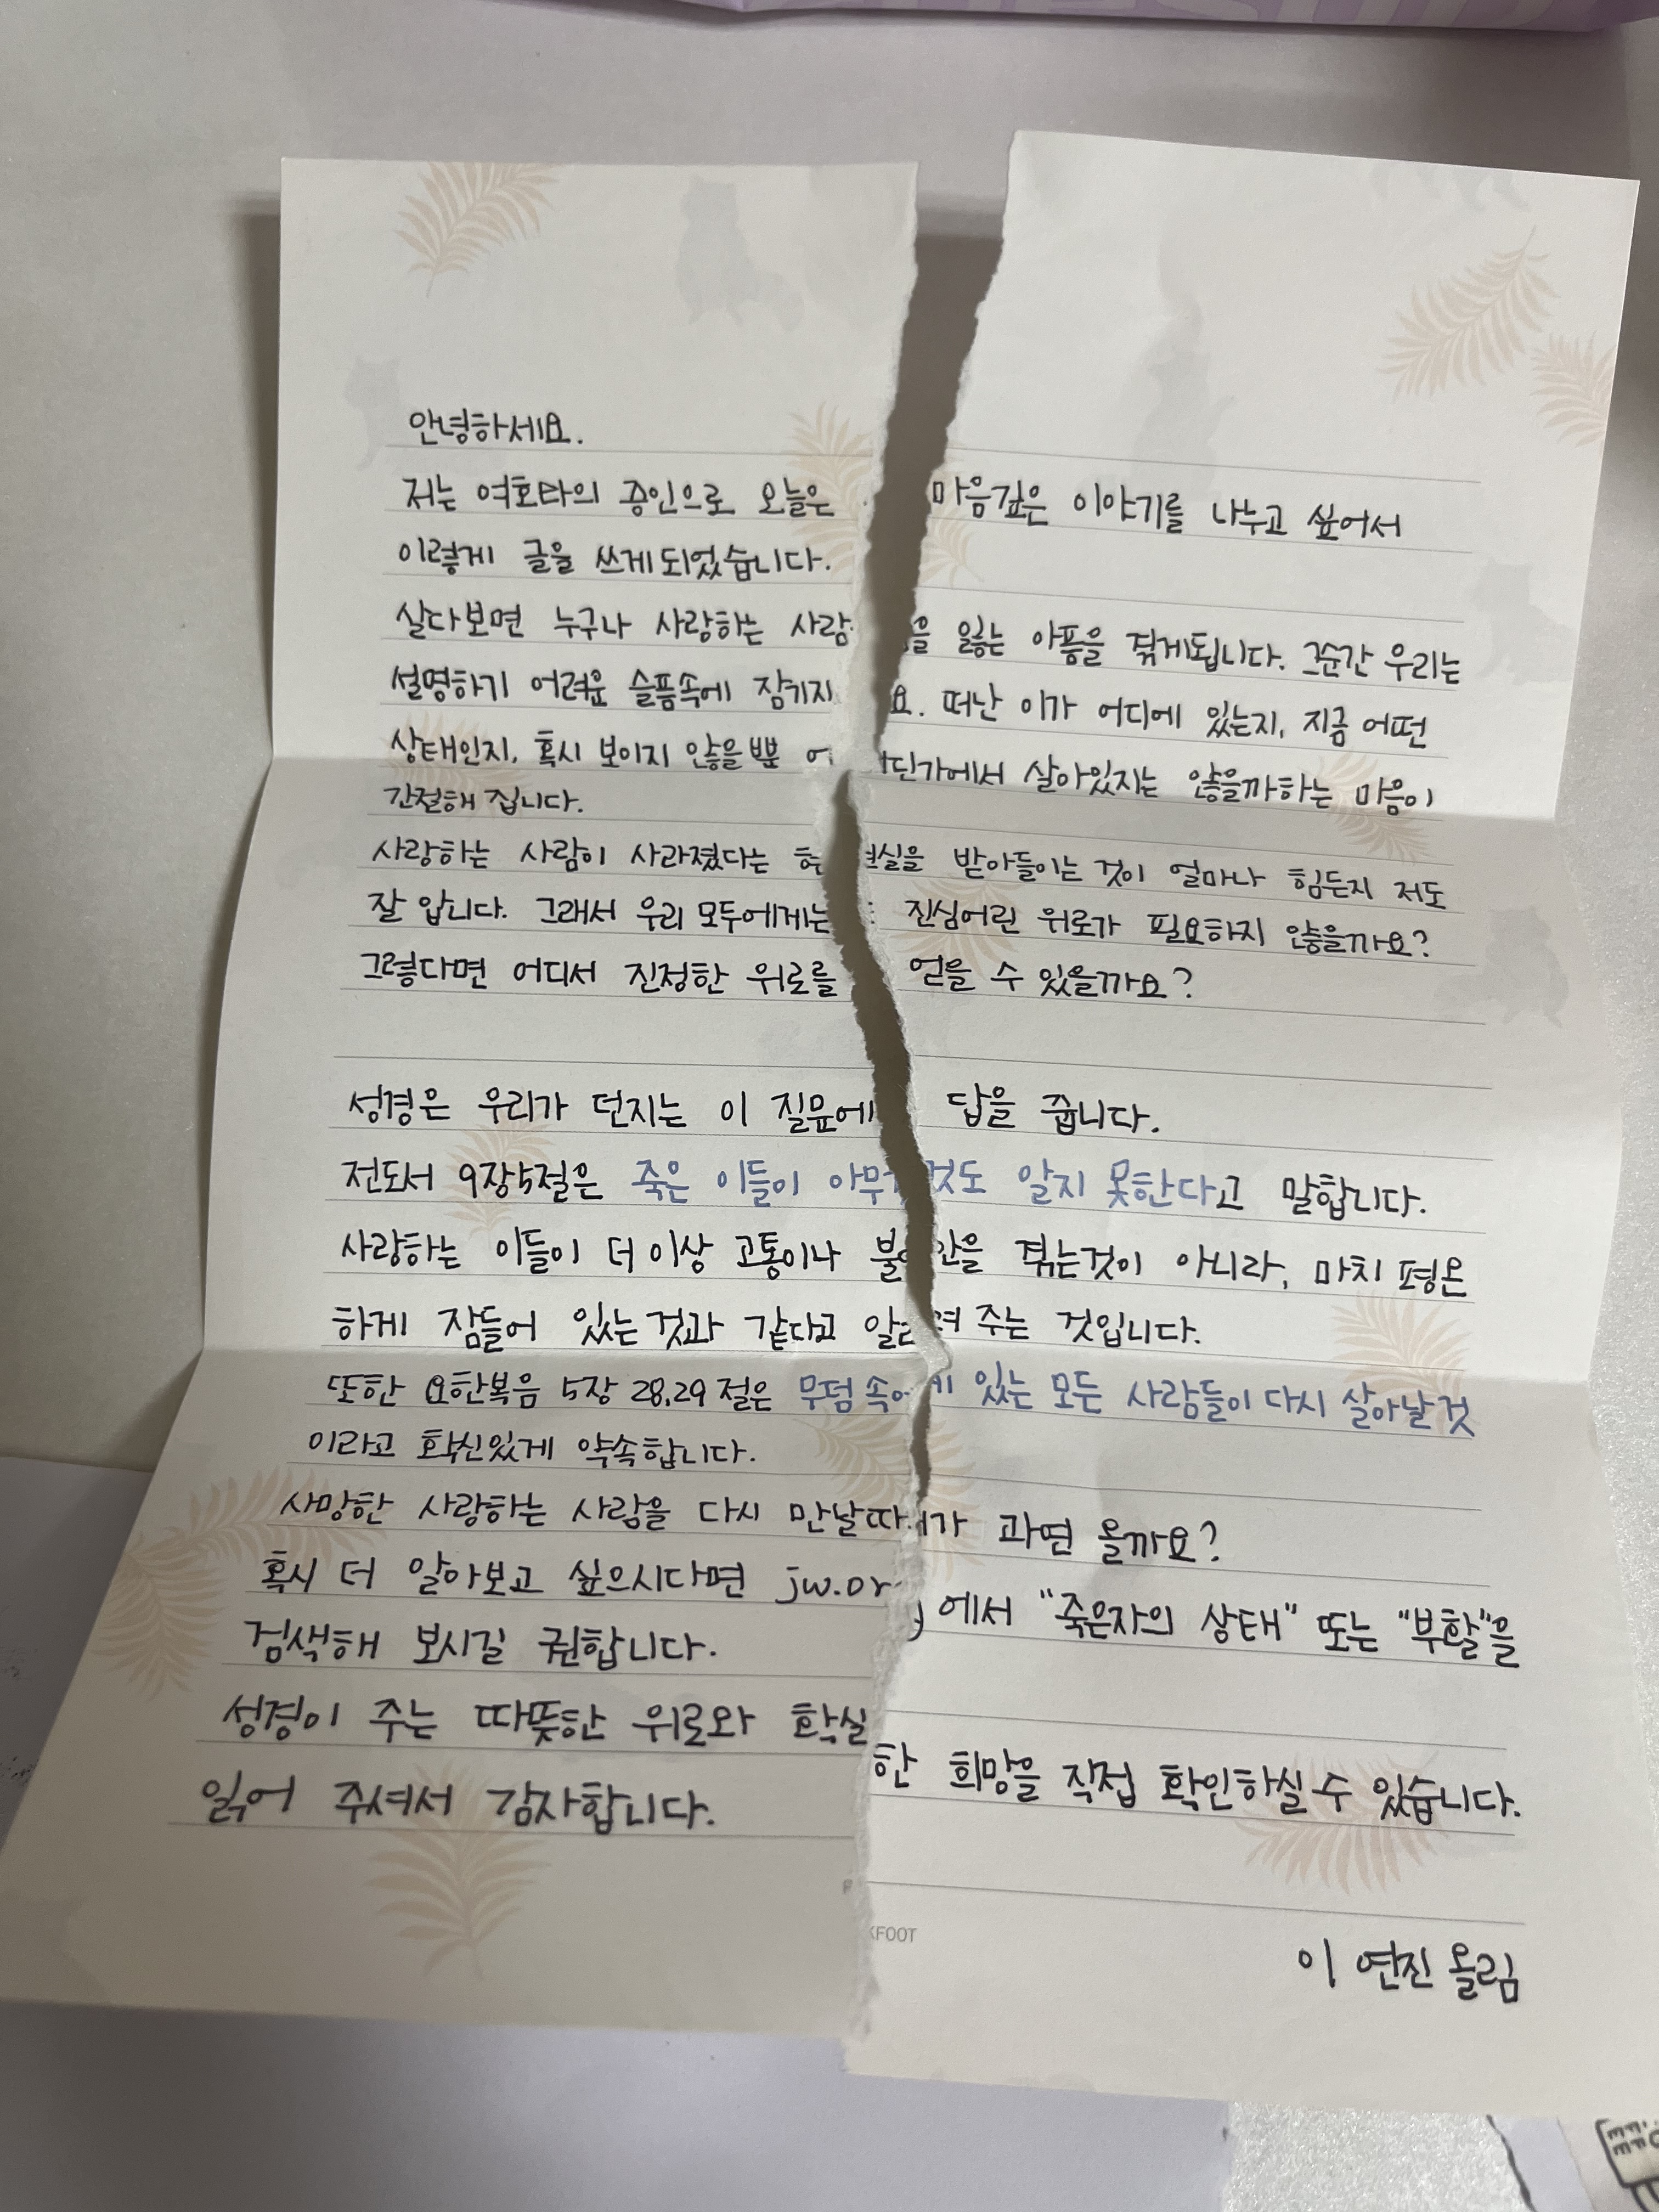 안녕하세요.
저는 여호와의 증인으로 오늘은 마음깊은 이야기를 나누고 싶어서
이렇게 글을 쓰게되었습니다.
살다보면 누구나 사랑하는 사람을 잃는 아픔을 겪게됩니다. 그순간 우리는
설명하기 어려운 슬픔속에 잠기지요. 떠난 이가 어디에 있는지, 지금 어떤
상태인지, 혹시 보이지 않을뿐 어딘가에서 살아있지는 않을까하는 마음이
간절해 집니다.
사랑하는 사람이 사라졌다는 현실을 받아들이는 것이 얼마나 힘든지 저도
잘 압니다. 그래서 우리 모두에게는 진심어린 위로가 필요하지 않을까요?
그렇다면 어디서 진정한 위로를 얻을 수 있을까요?
성경은 우리가 던지는 이 질문에 답을 줍니다.
전도서 9장5절은 죽은 이들이 아무것도 알지 못한다고 말합니다.
사랑하는 이들이 더 이상 고통이나 불안을 겪는것이 아니라, 마치 평온
하게 잠들어 있는것과 같다고 알려 주는 것입니다.
또한 요한복음 5장 28,29절은 무덤 속에 있는 모든 사람들이 다시 살아날것
이라고 확신있게 약속합니다.
사망한 사랑하는 사람을 다시 만날때가 과연 올까요?
혹시 더 알아보고 싶으시다면 jw.org에서 "죽은자의 상태" 또는 "부활"을
검색해 보시길 권합니다.
성경이 주는 따뜻한 위로와 확실한 희망을 직접 확인하실수 있습니다.
읽어 주셔서 감사합니다.
이 연진 올림